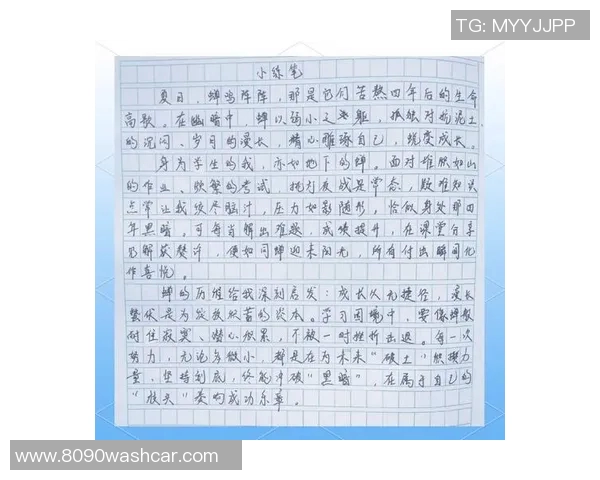 TG: MYYJJPP
小练笔
夏日，蝉鸣阵阵，那是它们苦熬四年后的生命
高歌。在幽暗中，蝉以弱小之躯，孤独对抗泥土
的沉闷、岁月的漫长，精心雕琢自己，蜕变成长。
身为学生的我，亦如地下的蝉。面对堆积如山
的作业、频繁的考试，挑灯夜战是常态，疑难知识
点常让我绞尽脑汁，压力如影随形，恰似身处那四
年黑暗。可每当解出难题，成绩提升，在课堂分享
见解获赞许，便如同蝉迎来阳光，所有付出瞬间化
作喜悦。
蝉的历程给我深刻启发：成长从无捷径，漫长
蛰伏是为突破积蓄的资本。学习困境中，要像蝉般
耐住寂寞、潜心积累，不被一时挫折击退。每一次
努力，无论多微小，都是在为未来“破土”积攒力
量，坚持到底，终能冲破“黑暗”，在属于自己的
“枝头”奏响成功乐章。
www.8090washcar.com